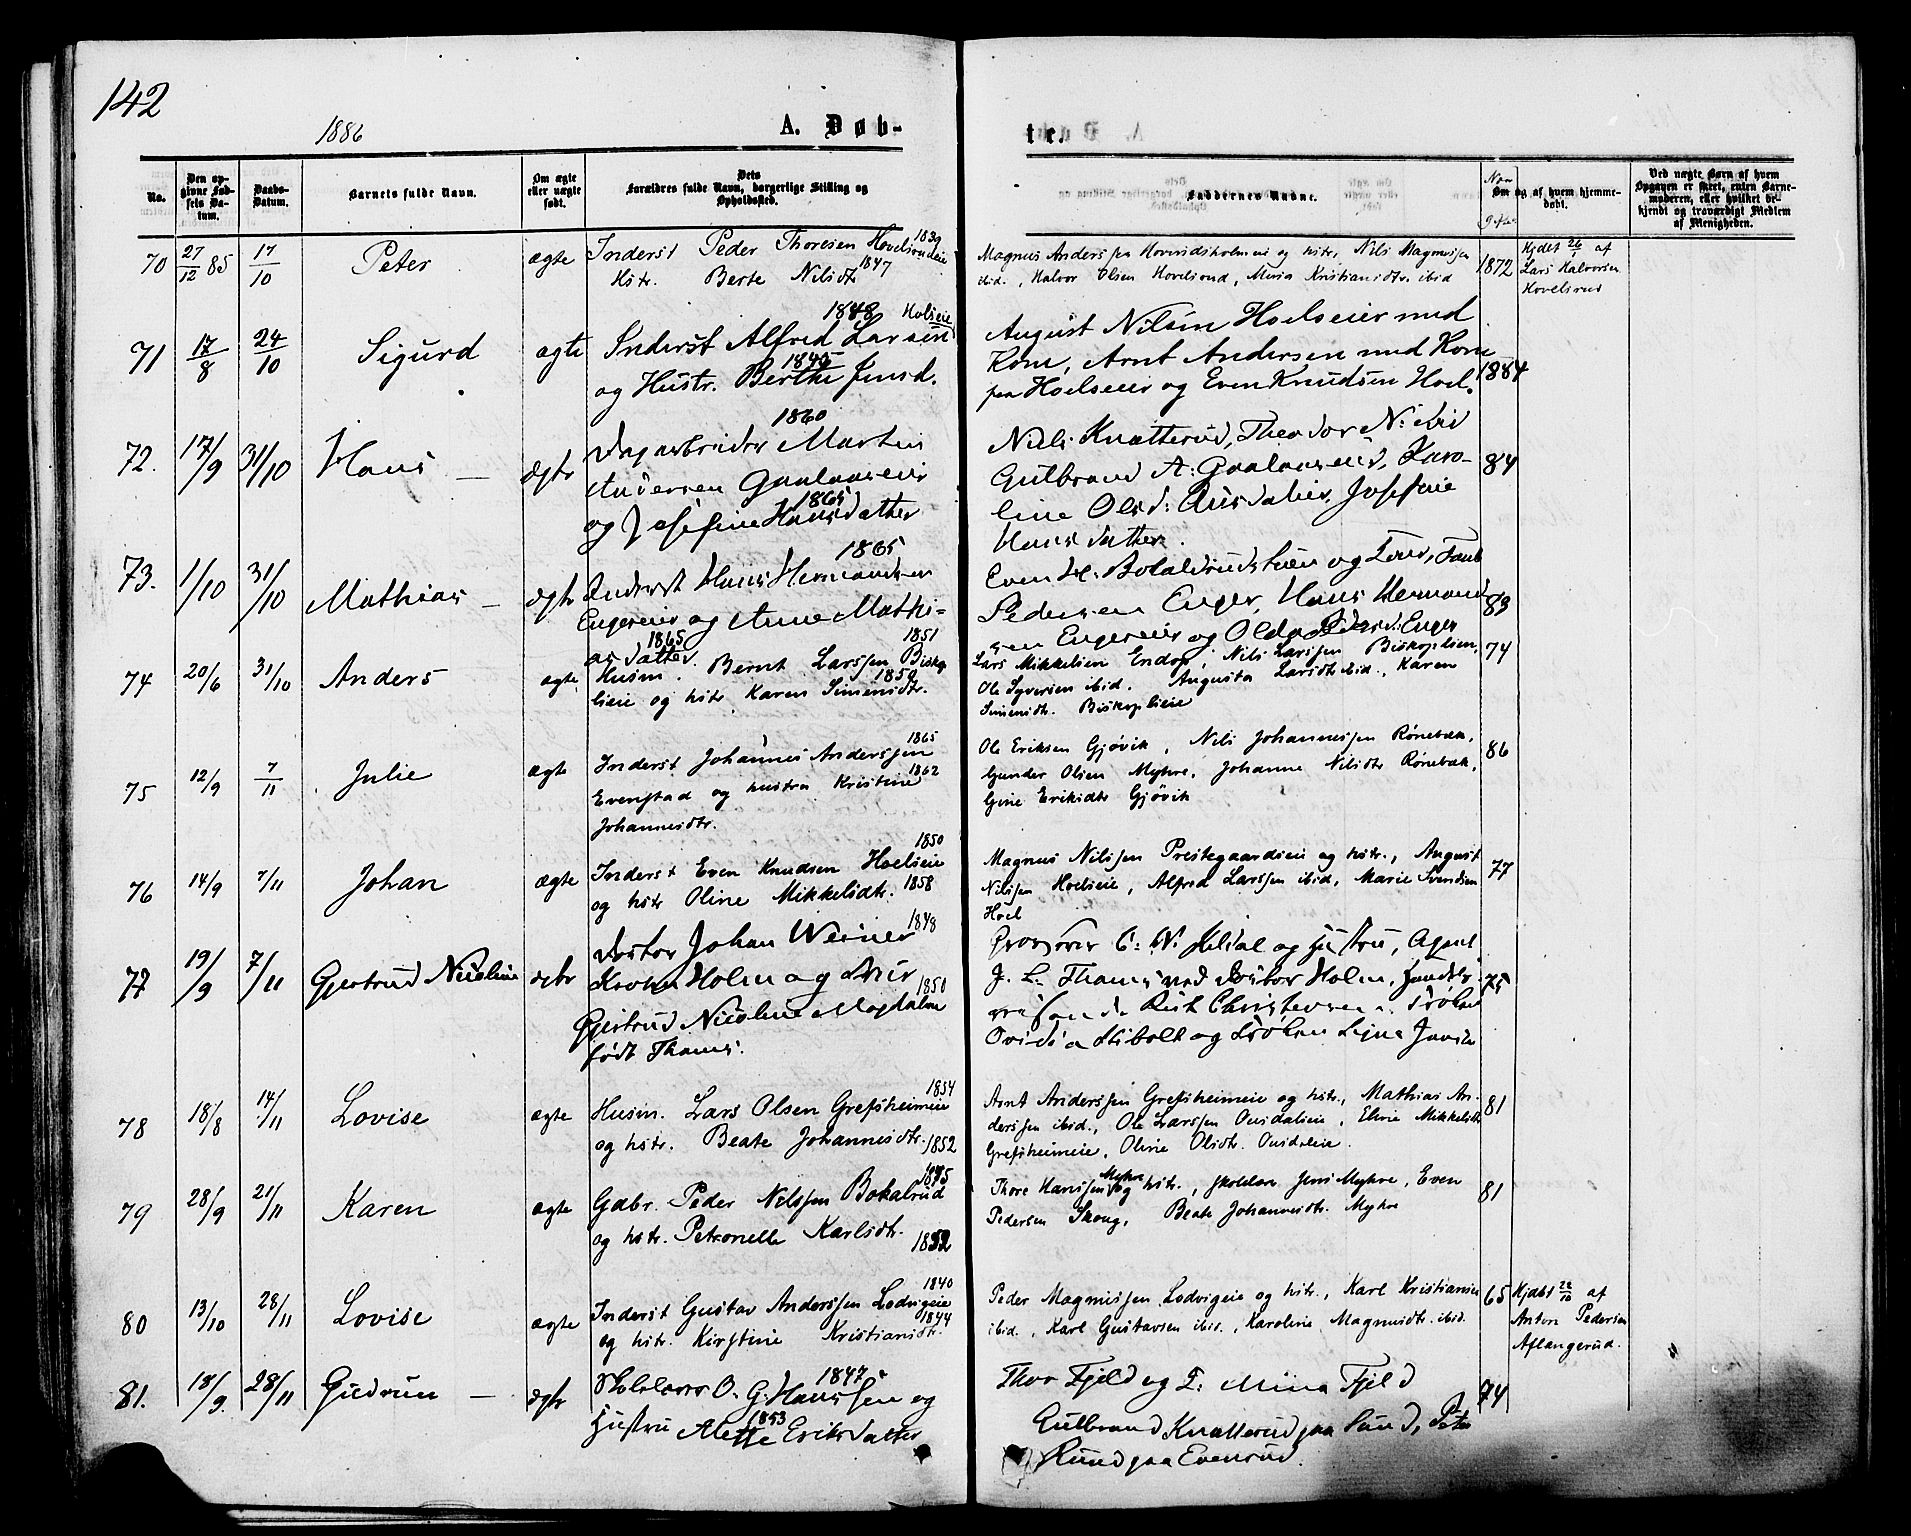 142
1886
A. Døb-
ter.
No.
Den opgivne Fødsels Datum.
Daabs-Datum.
Barnets fulde Navn.
Om ægte eller uægte født.
Dets Forældres fulde Navn, borgerlige Stilling og Opholdssted.
Faddernes Navne.
Naar gifte
Om og af hvem hjemmedøbt.
Ved uægte Børn af hvem Opgaven er skeet, enten Barnemoderen, eller hvilket bekjendt og troværdigt Medlem af Menigheden.
70 27/12 85 17/10 Peter ægte
Inderst Peder Thoresen Hovelsrudeie 1839
Hstr. Berte Nilsdtr 1847
Magnus Anderssen og hstr, Nils Magnussen
ibid., Halvor Olsen Hovelsrud, Maria Kristiansdtr. ibid
1872
Hjdbt 26/1 af
Lars Halvorsen
Hovelsrud
71 17/8 24/10 Sigurd ægte
1848 Holseie
Inderst Alfred Larsen
1845
og Hustr. Berthe Jensd.
August Nilsen Hoelseier med
Kone, Arnt Andersen med Kone
paa Hoelseier og Even Knudsen Hoel.
1884
72. 17/9 31/10 Hans — ægte
1860
Dagarbeider Martin
Andersen Gaalaaseier
1865
og Josefine Hansdatter
Niels Knatterud, Theodor N: ibid
Gulbrand A: Gaalaaseid, Karo-
line Olsd: Ousdalen, Josefine
Hansdatter.
84
73. 1/10 31/10 Mathias — ægte
1865
Inderst Hans Hermandsen
Engereier og Anne Mathi-
1865
asdatter.
Even H: Bolaldrudstuen og
Pedersen Enger, Hans Hermand-
sen Engereier og Enger
83
74 20/6 31/10 Anders ægte
1851
Husm. Bernt Larssen Biskop
1850
lieie og hstr Karen Simensdtr.
Lars Mikkelsen Endop, Nils Larssen Biskoplien,
Ole Syversen ibid. Augusta Larsdtr ibid., Karen
Simensdtr. Biskoplieie
74
75 12/9 7/11 Julie ægte
1865
Inderst Johannes Anderssen
1862
Evenstad og hustru Kristine
Johannesdtr.
Ole Eriksen Gjøvik, Nils Johannessen Rønebæk,
Gunder Olsen Myhre, Johanne Nilsdtr Rønebæk,
Gine Eriksdtr Gjøvik
86
76 14/9 7/11 Johan ægte
1850
Inderst Even Knudsen Hoelseie
og hstr Oline Mikkelsdtr. 1858
Magnus Nilssen Prestegaardseie og hstr., August
Nilssen Hoelseie, Alfred Larssen ibid, Marie Svendsen
Hoel
77
77 19/9 7/11 Gjertrud Nicoline ægte
1848
Doktor Johan Werner
Krohn Holm og Fru 1850
Gjertrud Nicoline Magdalene
født Thams.
Provisor C: W. og Hustru, Agent
J. L. Thams ved Doktor Holm,
Christensen, Frøken
Ovidia Stibolt og Frøken
75
78 18/8 14/11 Lovise ægte
1854
Husm. Lars Olsen Grefsheimeie
og hstr. Beate Johannesdtr. 1852
Arnt Anderssen Grefsheimeie og hstr., Mathias An-
derssen ibid., Ole Larssen Ousdalseie, Eline Mikkelsdtr
Grefsheimeie, Oline Olsdtr. Ousdaleie.
81
79 28/9 21/11 Karen ægte
1845
Gdbr. Peder Nilssen Bokalrud
og hstr. Petronelle Karlsdtr. 1852
Thore Hanssen Myhre og hstr., skolelær. Jens Myhre, Even
Pedersen Skoug, Beate Johannesdtr. Myhre
81
80 13/10 28/11 Lovise ægte
1840
Inderst Gustav Anderssen Lodvigeie
1844
og hstr. Kirstine Kristiansdtr.
Peder Magnussen Lodvigeie og hstr., Karl Kristiansen
ibid., Karl Gustavsen ibid., Karoline Magnusdtr. ibid.
65
Hjdbt 22/10 af
Anton Pedersen
Aflangerud.
81. 18/9. 28/11 Gudrun — ægte
1847
Skolelærer O. G. Hanssen og
1853
Hustru Alette Eriksdatter
Thor Fjeld og F: Mina Fjeld
Gulbrand Knatterud paa Sund, Peter
Rund paa Evensrud.
74